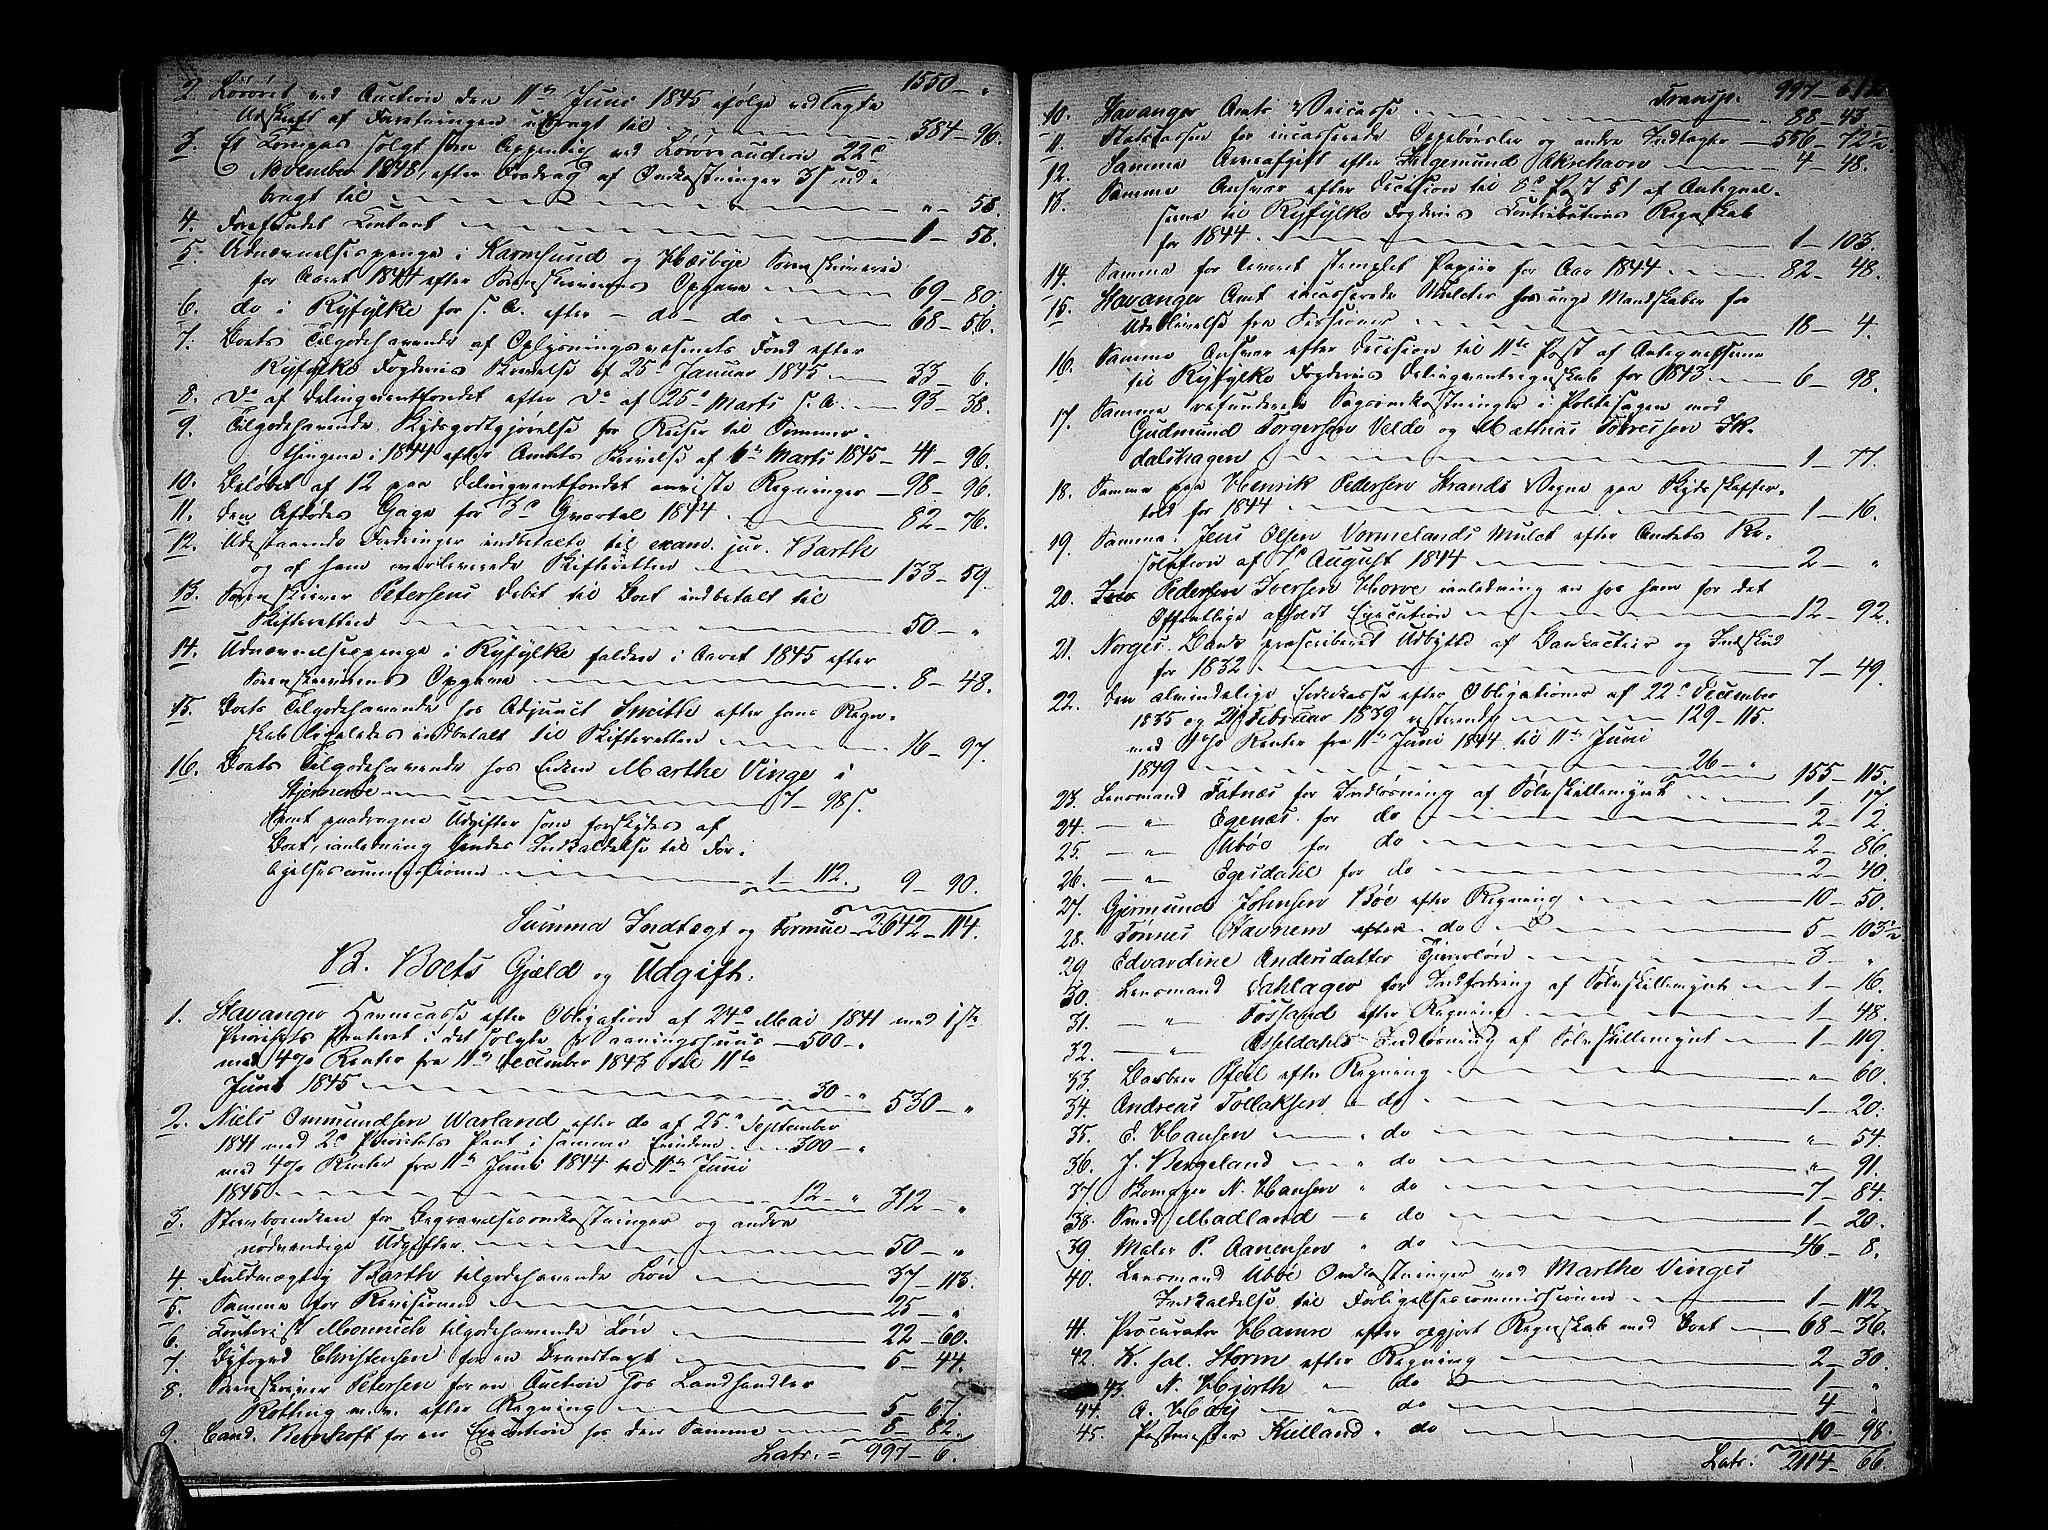 1550 — "
2. Løsøret ved Auction den 11te Juni 1845 ifølge vedlagte
Udskrift af Forretningen udbragt til 384 — 96.
3. Et solgt som ved Løsøreauction 22de
November 1848, efter Fradrag af Omkostninger 35 ud-
bragt til " — 58.
4. Forefundet Contant 1 — 58.
5. Udnævnelsespenge i Karmsund og Hæsbye Sorenskriverie
for Aaret 1844 efter Sorenskriverens Opgave 69 — 80.
6. do i Ryfylke for s. A. efter — do — do 68 — 56.
7. Boets Tilgodehavende af Oplysningsvæsenets Fond efter
Ryfylke Fogderies Skrivelse af 25de Januar 1845 33 — 6.
8. Do af Delinqventfondet efter Do af 25de Marts s. A. 93 — 38.
9. Tilgodehavende Skydsgodtgjørelse for Reiser til Sommer-
thingene i 1844 efter Amtets Skrivelse af 6te Marts 1845 — 41 — 96.
10. Beløbet af 12 paa Delinqventfondet anviste Regninger — 98 — 96.
11. Den Afdødes Gage for 3de Qvartal 1844 82 — 76.
12. Udestaaende Fordringer indbetalte til exam. jur. Barth
og af ham overleverede Skifteretten 133 — 59.
13. Sorenskriver Petersens Debet til Boet indbetalt til
Skifteretten 50 — "
14. Udnævnelsespenge i Ryfylke falden i Aaret 1845 efter
Sorenskriverens Opgave 8 — 48.
15. Boets Tilgodehavende hos Adjunct Smith efter hans Regn-
skab ligeledes indbetalt til Skifteretten 16 — 97.
16. Boets Tilgodehavende hos Enken Marthe Vinge i
Stjernerøe 7 — 98 s.
samt paadragne Udgifter som forskydes af
Boet, i anledning hendes Indkaldelse til For-
ligelsescommissionen 1 — 112. 9 — 90.
Summa Indtægt og Formue — 2642 — 114.
B. Boets Gjæld og Udgift.
1. Stavanger Havnecasse efter Obligation af 24de Mai 1841 med 1ste
Prioritets Panteret i det solgte Vaaningshuus — 500 — "
med 4% Renter fra 11te December 1843 til 11te
Juni 1845 30 — " 530 — "
2. Niels Ommundsen Warland efter do af 25de September
1841 med 2de Prioritets Pant i samme Eiendom 300 — "
med 4% Renter fra 11te Juni 1844 til 11te Juni
1845 12 — " 312 — "
3. Stervboenken for Begravelsesomkostninger og andre
nødvendige Udgifter 50 — "
4. Fuldmægtig Barth tilgodehavende Løn 37 — 113.
5. Samme for Revisionen 25 — "
6. Contorist Monnich tilgodehavende Løn 22 — 60.
7. Byfoged Christensen for en Branntaxt 5 — 44.
8. Sorenskriver Petersen for en Auction hos Landhandler
Kolting m.v. efter Regning 5 — 67.
9. Cand. Bernhoft for en Execution hos den Samme 8 — 82.
Latr. = 997 — 6.
Transp. 997 — 6
10. Stavanger Amts Veicasse 88 — 43.
11. Statscassen for incasserede Oppebørsler og andre Indtægter — 556 — 72 1/2
12. Samme Arveafgift efter Aagemund Akrehavn 4 — 48.
13. Samme Ansvar efter Decision til Post 7 § 1 af Antegnel-
serne til Ryfylke Fogderies Contributions Regnskab
for 1844 1 — 103.
14. Samme for leveret stemplet Papiir for Aar 1844 82 — 48.
15. Stavanger Amt incasserede Mulcter hos unge Mandskaber for
Udeblivelse fra Sessioner 18 — 4.
16. Samme Ansvar efter Decision til 11te Post af Antegnelserne
til Ryfylke Fogderies Delinqventregnskab for 1843 6 — 98.
17. Samme refunderede Sagsomkostninger i Politiesagen mod
Gudmund Torgersen Velde og Mathias Torressen Ek-
dalshagen 1 — 77.
18. Samme paa Henrik Pedersen Strands Vegne paa Skydsskaffer-
told for 1844 1 — 16.
19. Samme: Jens Olsen Vormelands Mulct efter Amtets Re-
solution af 7de August 1844 2 — "
20. Pedersen Iversen Horve i anledning en hos ham for det
Offentlige afholdt Execution 12 — 92.
21. Norges Bank præscriberet Udbytte af Bankactier og Indskud
for 1832 7 — 49.
22. Den almindelige Enkekasse efter Obligationer af 22de December
1835 og 21de Februar 1839 resterende 129 — 115.
med 4% Renter fra 11te Juni 1844 til 11te Juni
1849 26 — " 155 — 115.
23. Lensmand Tatnæs for Indløsning af Sølvskillemynt 1 — 17.
24. — " Egenæs for do 2 — 2.
25. — " Ubøe for do 2 — 86.
26. — " Egesdahl for do 2 — 40.
27. Gjermund Johnsen Bøe efter Regning 10 — 50.
28. Tønnes Stavnem efter do 5 — 103 1/2
29. Edvardine Andersdatter Tjenerløn 3 — "
30. Lensmand Sahlager for Indfordring af Sølvskillemynt 1 — 16.
31. — " Fossand efter Regning 1 — 48.
32. — " Asseldahl Indløsning af Sølvskillemynt 1 — 119.
33. Barbeer Pfeil efter Regning " — 60.
34. Andreas Tollaksen " do 1 — 20.
35. E. Hansen " do " — 54.
36. J. Bergeland " do " — 91.
37. Skomager N. Hansen " do 7 — 84.
38. Smed Madland — " do 1 — 20.
39. Maler P. Aanensen " do 46 — 8.
40. Lensmand Ubøe Omkostninger ved Marthe Vinges
Indkaldelse til Forligelsescommissionen 1 — 112.
41. Procurator Hamre efter opgjort Regnskab med Boet 68 — 36.
42. K. sal. Storm efter Regning 2 — 30.
43. N. Hjorth " do 1 — "
44. A. Høy " do 4 "
45. Postmester Kielland " do 10 — 98.
Latr. 2114 — 66.